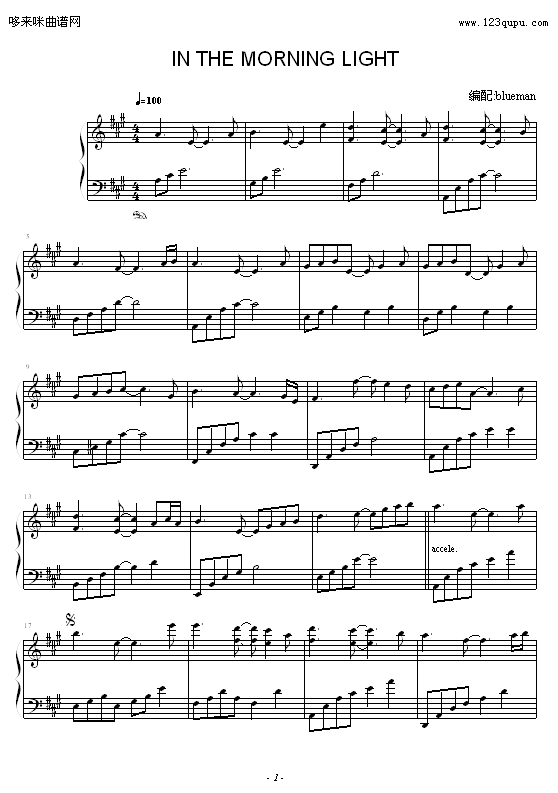 哆来咪曲谱网
www.123qupu.com
IN THE MORNING LIGHT
♩=100
编配:blueman
5
9
13
accele.
17
- 1 -